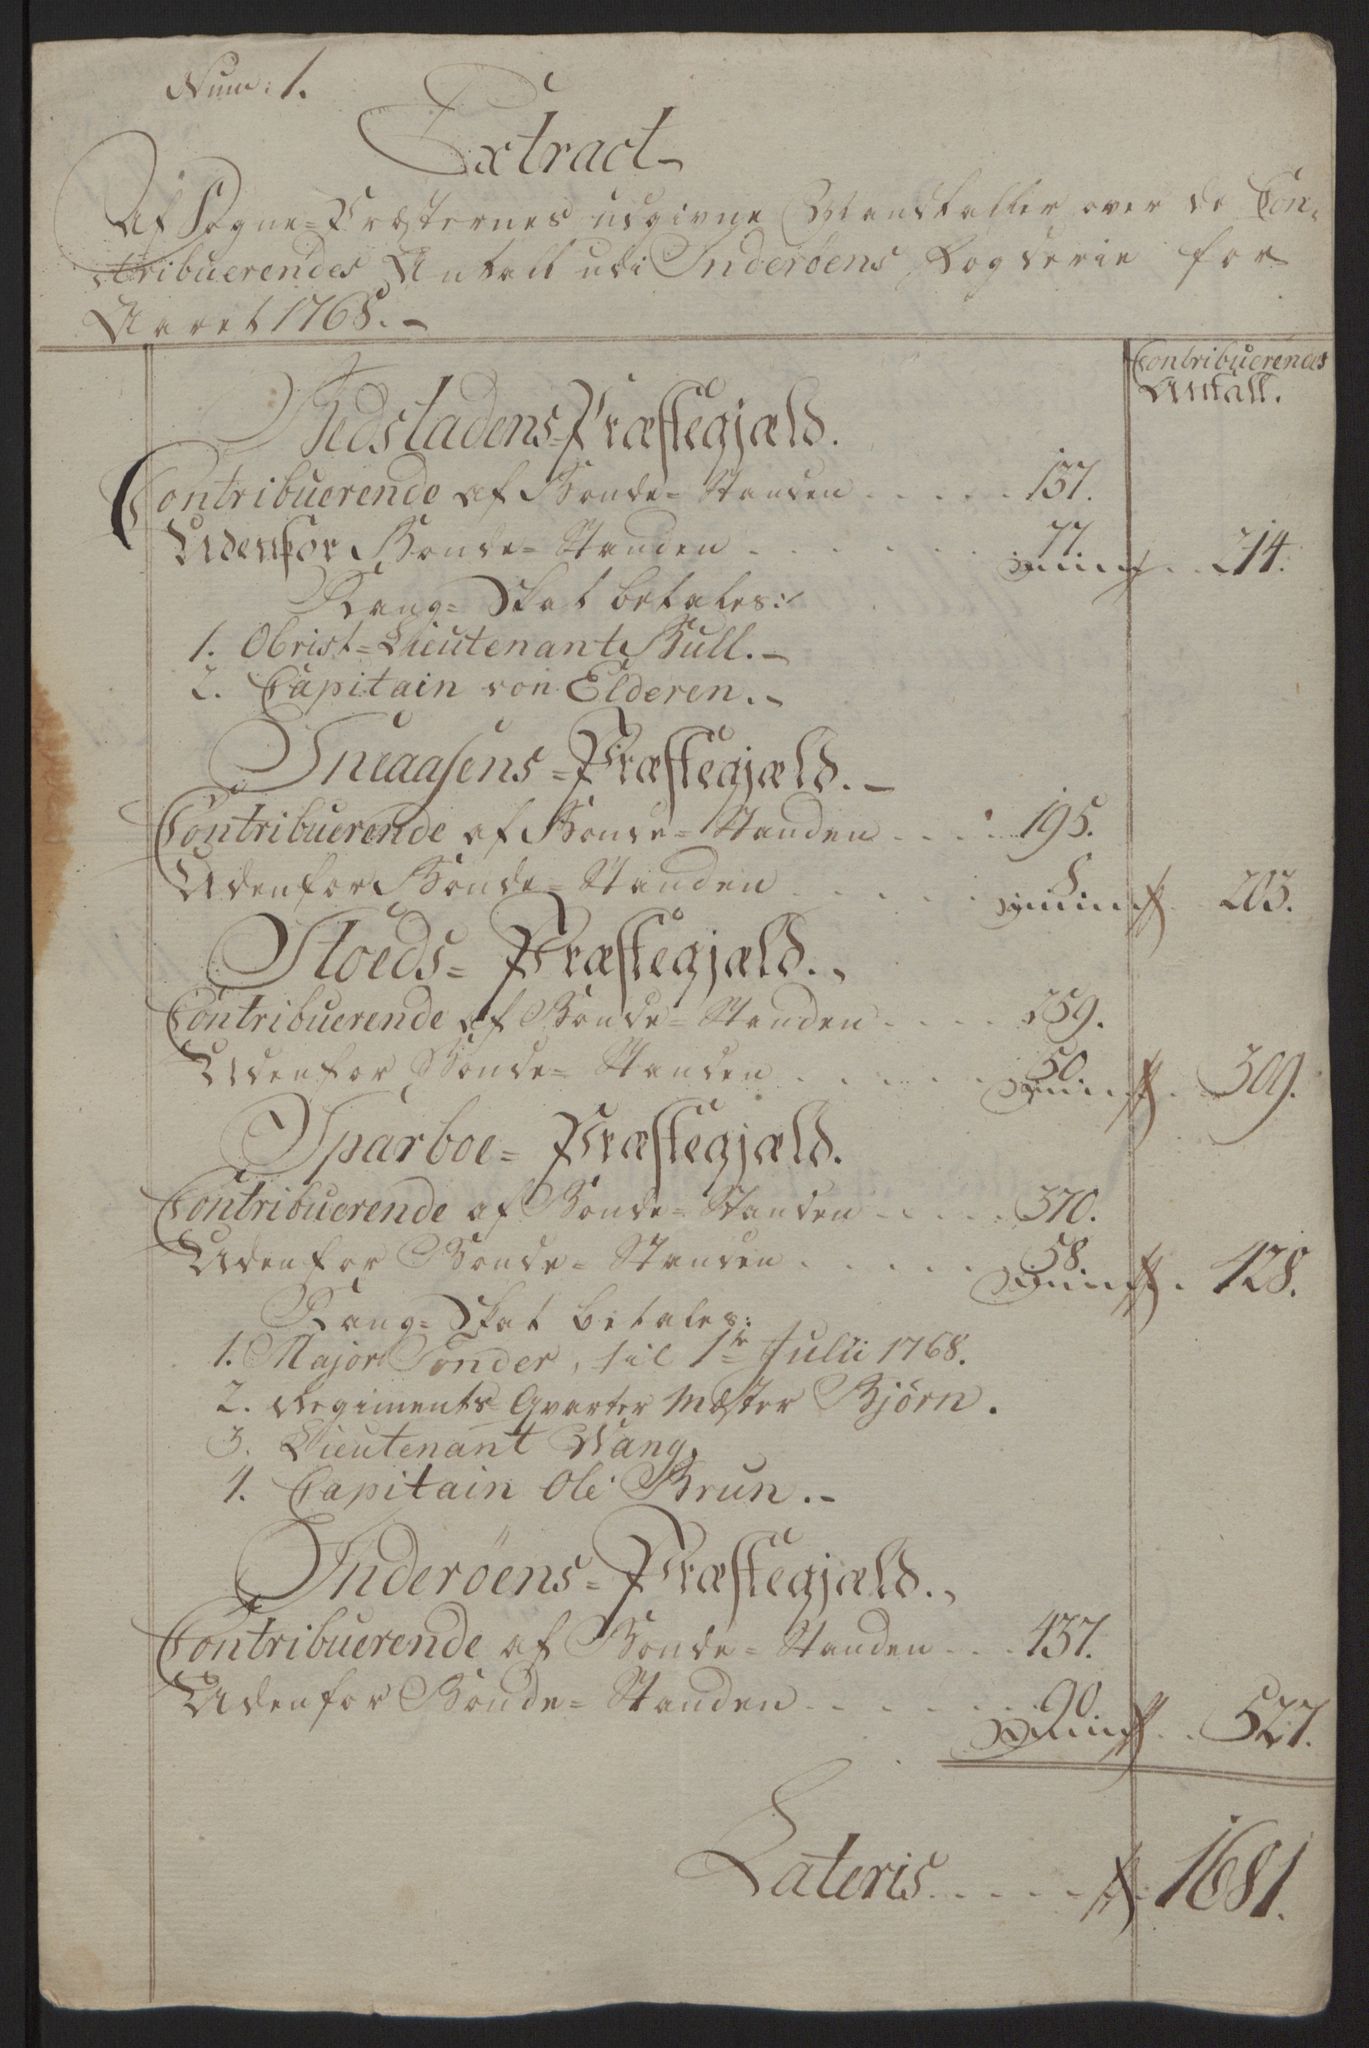 Num: 1.
Extract
Af Sogne-Præsternes udgivne Mandtaller over de Con-
tribuerendes Antall udi Inderøens Fogderie for
Aaret 1768.
Contribuerendes
Antall.
Bedstadens-Præstegjæld.
Contribuerende af Bonde-Standen . . . . . 137.
Udenfor Bonde-Standen . . . . . . 77. . . 214.
Rang-Skat betales:
1. Obrist-Lieutenant Bull.
2. Capitain von Elderen.
Sneaasens-Præstegjæld.
Contribuerende af Bonde-Standen . . . . 195.
Udenfor Bonde-Standen . . . . . 8. 203.
Stoeds-Præstegjæld.
Contribuerende af Bonde-Standen . . . . 259.
Udenfor Bonde-Standen . . . . . 50. . . 309.
Sparboe-Præstegjæld.
Contribuerende af Bonde-Standen . . . . 370.
Udenfor Bonde-Standen . . . . . 58. . 428.
Rang-Skat betales:
1. Major Sonder, til 1te Julii 1768.
2. Regiments-Qvarter Mæster Bjørn.
3. Lieutenant Wang.
4. Capitain Ole Brun.
Inderöens-Præstegjæld.
Contribuerende af Bonde-Standen . . . 437.
Udenfor Bonde-Standen . . . . . 90. . . 527.
Lateris . . . . . 1681.